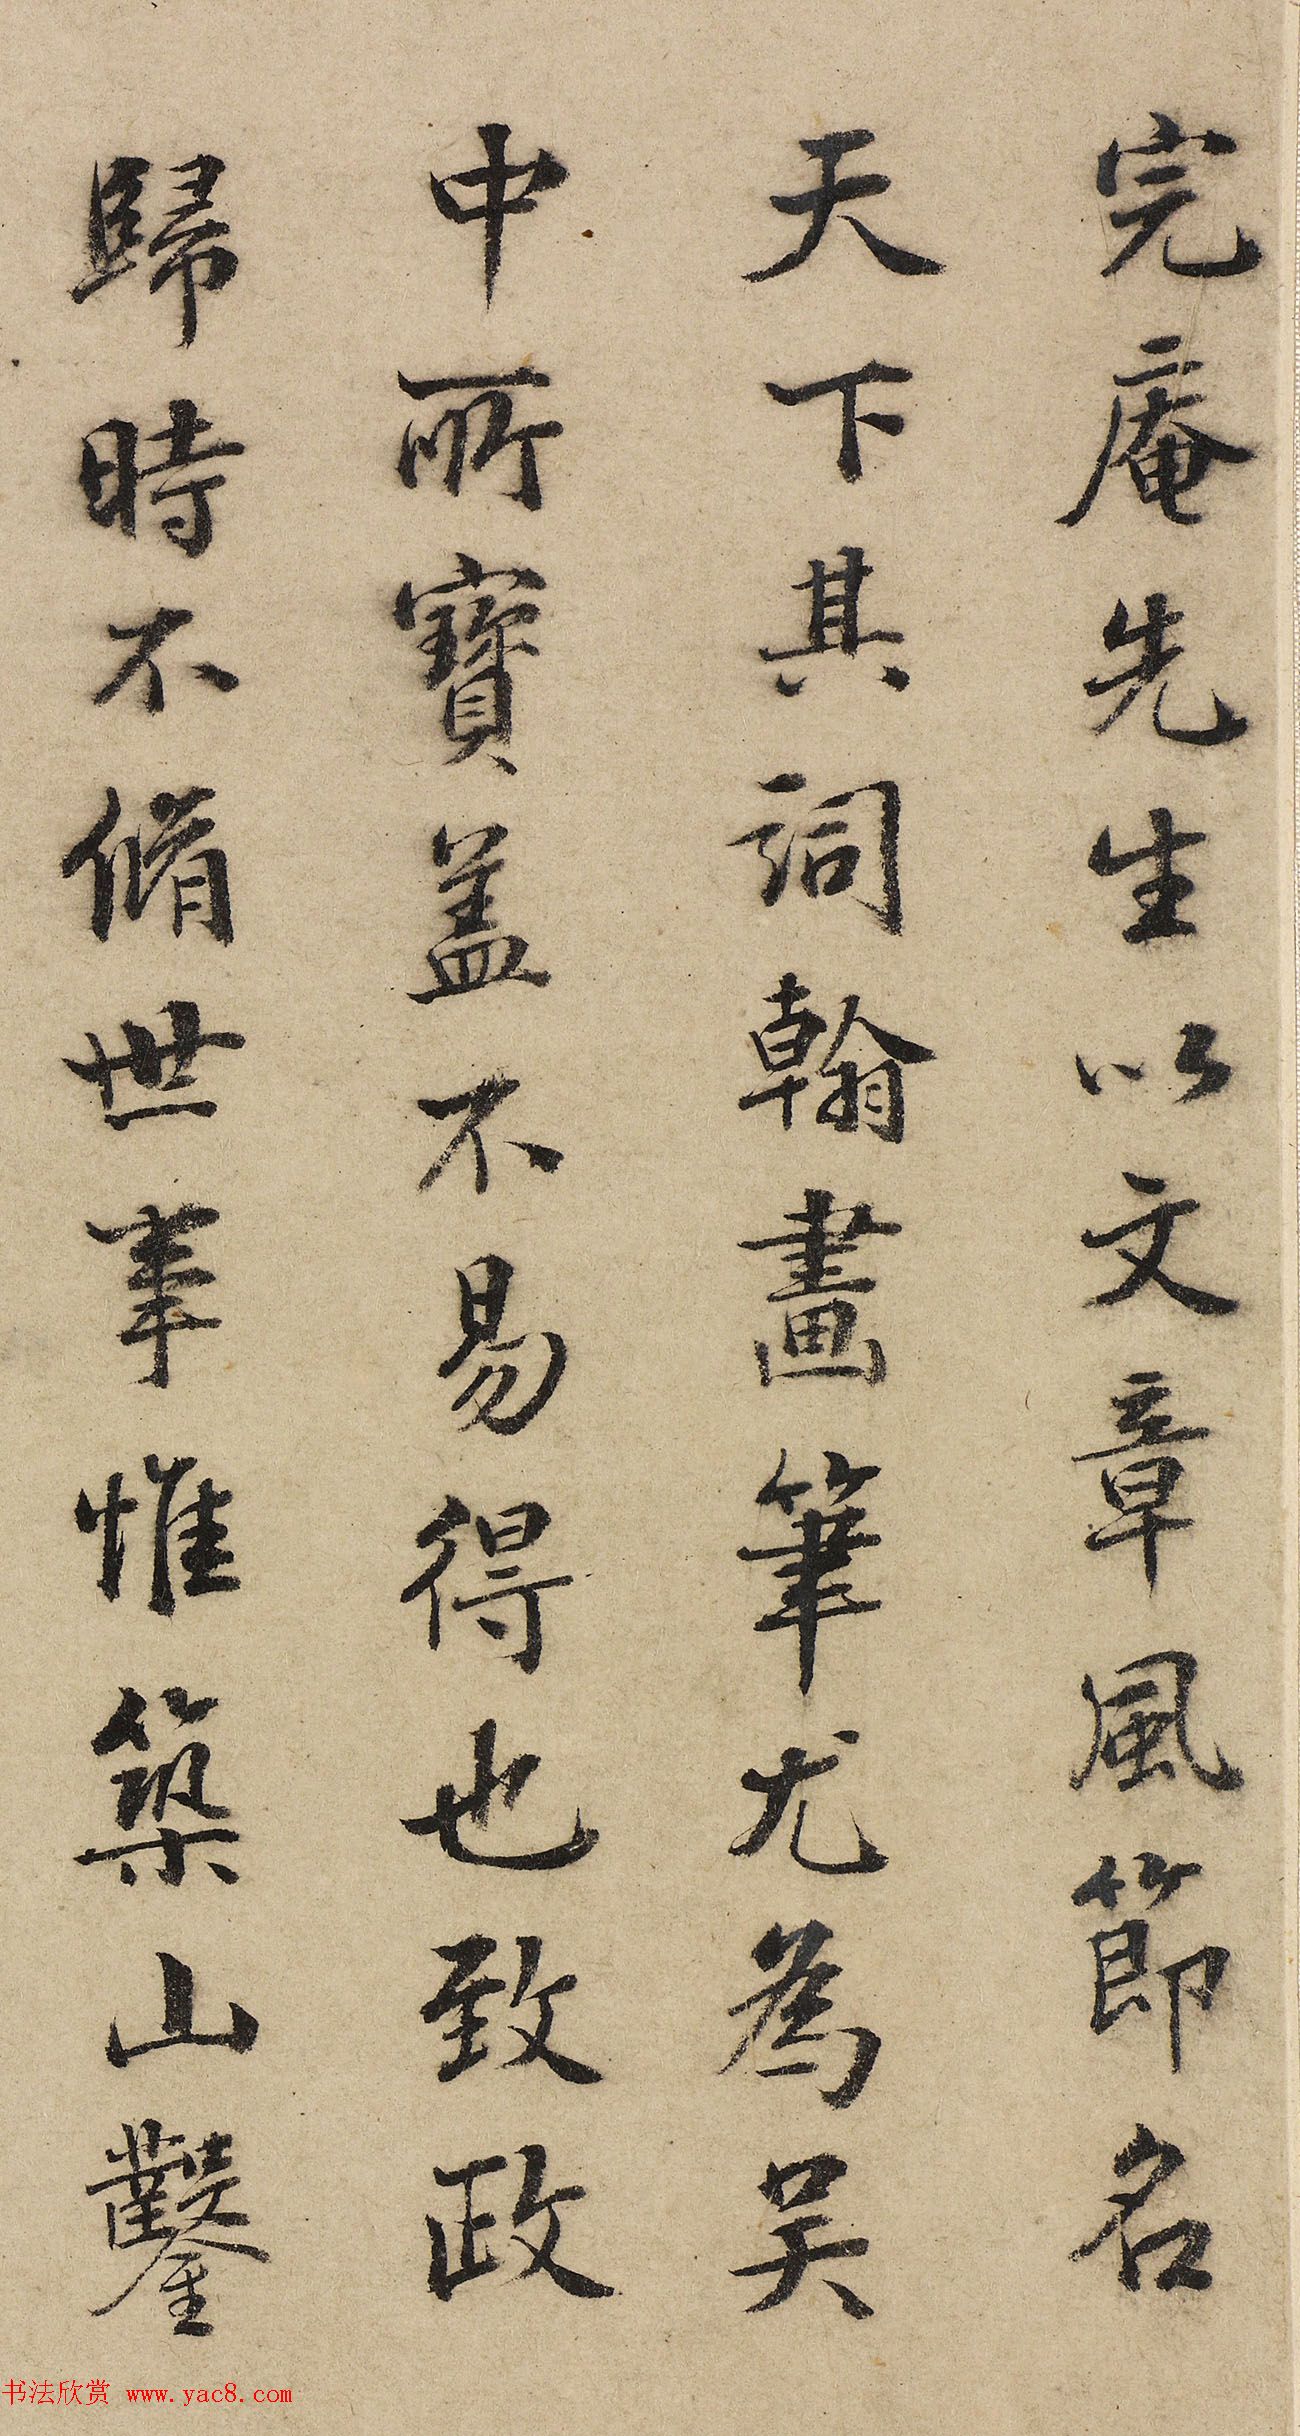 完庵先生以文章風節名
天下其詞翰畫筆尤為吳
中所寶盖不易得也致政
歸時不脩世事惟築山鑿
书法欣赏 www.yac8.com